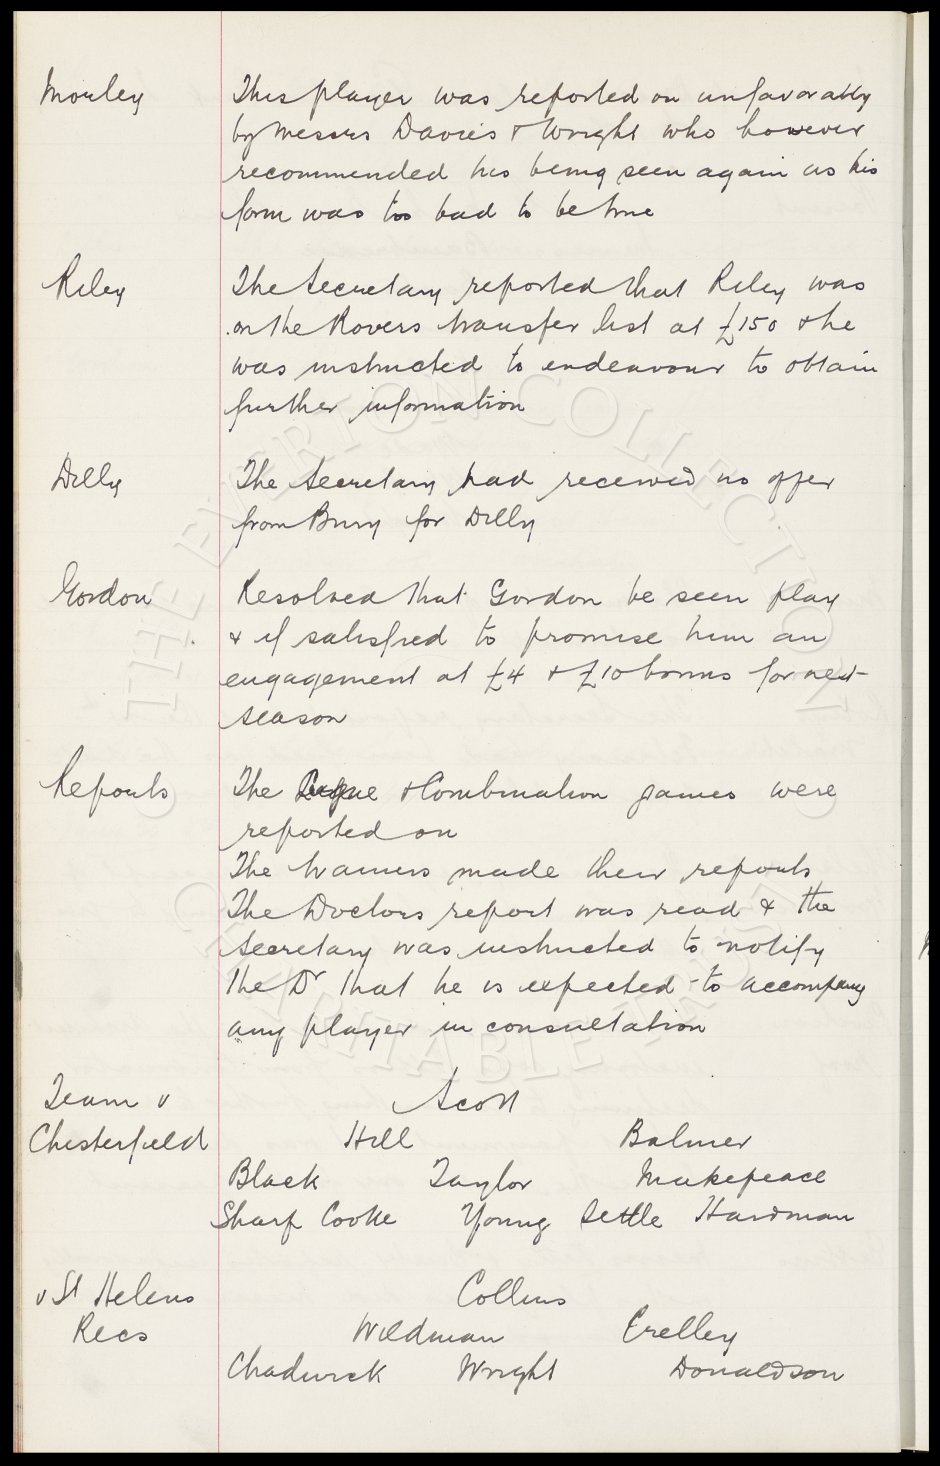 Morley This player was reported on unfavorably
by Messrs Davies & Wright who however
recommended his being seen again as his
form was too bad to be true
Riley The Secretary reported that Riley was
on the Rovers transfer list at £150 & he
was instructed to endeavour to obtain
further information
Dilly The Secretary had received no offer
from Bury for Dilly
Gordon Resolved that Gordon be seen play
& if satisfied to promise him an
engagement at £4 & £10 bonus for next
season
Reports The League & Combination games were
reported on
The trainers made their reports
The Doctors report was read & the
Secretary was instructed to notify
the Dr that he is expected to accompany
any player in consultation
Team v Scott
Chesterfield Hill Balmer
Black Taylor Makepeace
Sharp Cooke Young Settle Hardman
v St Helens Collins
Recs Wildman Crelley
Chadwick Wright Donaldson
THE EVERTON COLLECTION
CHARITABLE TRUST